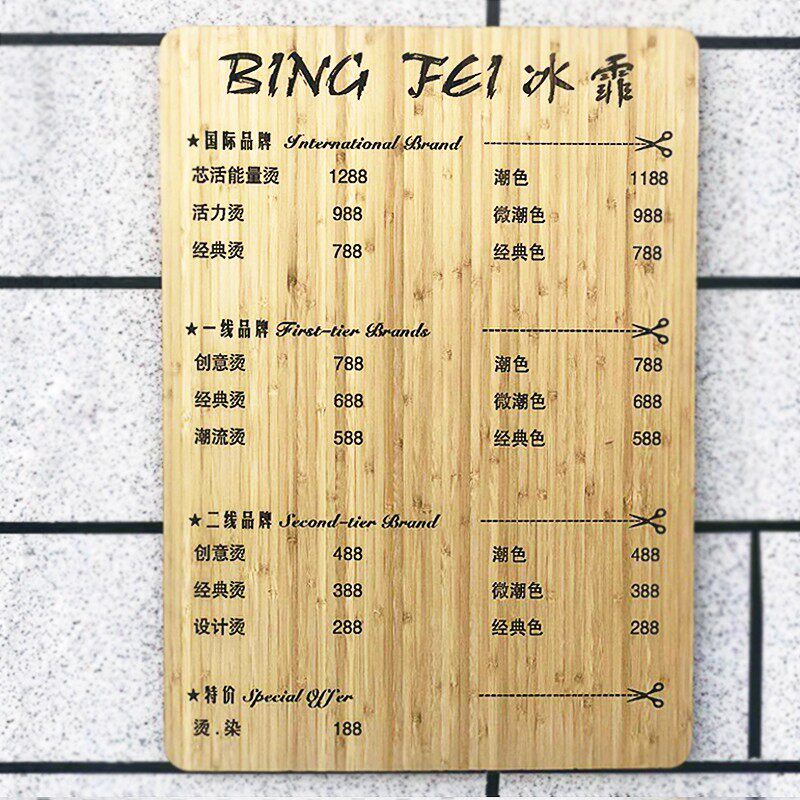 BING FEI 冰霏
★国际品牌 International Brand
芯活能量烫 1288 潮色 1188
活力烫 988 微潮色 988
经典烫 788 经典色 788
★一线品牌 First-tier Brands
创意烫 788 潮色 788
经典烫 688 微潮色 688
潮流烫 588 经典色 588
★二线品牌 Second-tier Brand
创意烫 488 潮色 488
经典烫 388 微潮色 388
设计烫 288 经典色 288
★特价 Special Offer
烫.染 188